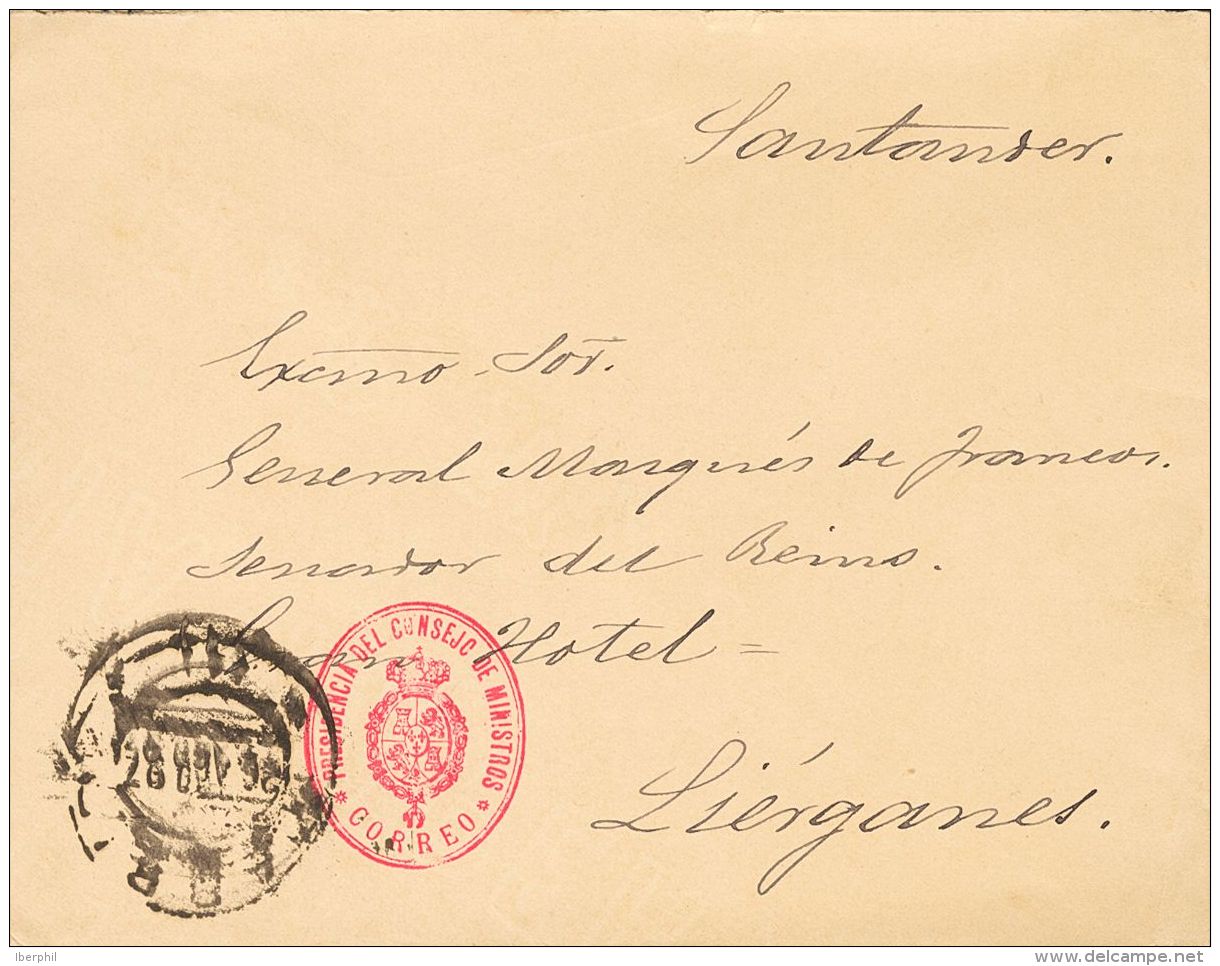 Santander.
Excmo. Sor.
General Marqués de Francos.
Senador del Reino.
Gran Hotel =
Liérganes.
PRESIDENCIA DEL CONSEJO DE MINISTROS
* CORREO *
Iberphil
delcampe.net